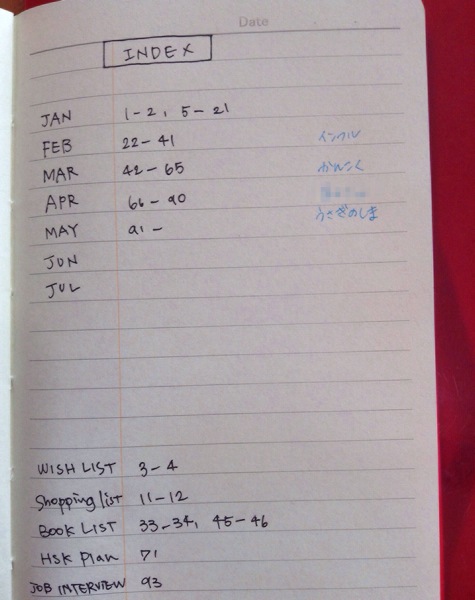 Date
INDEX
JAN 1-2, 5-21
FEB 22-41 インフル
MAR 42-65 かんこく
APR 66-90
うさぎのしま
MAY 91-
JUN
JUL
WISH LIST 3-4
Shopping list 11-12
BOOK LIST 33-34, 45-46
HSK Plan 71
JOB INTERVIEW 93